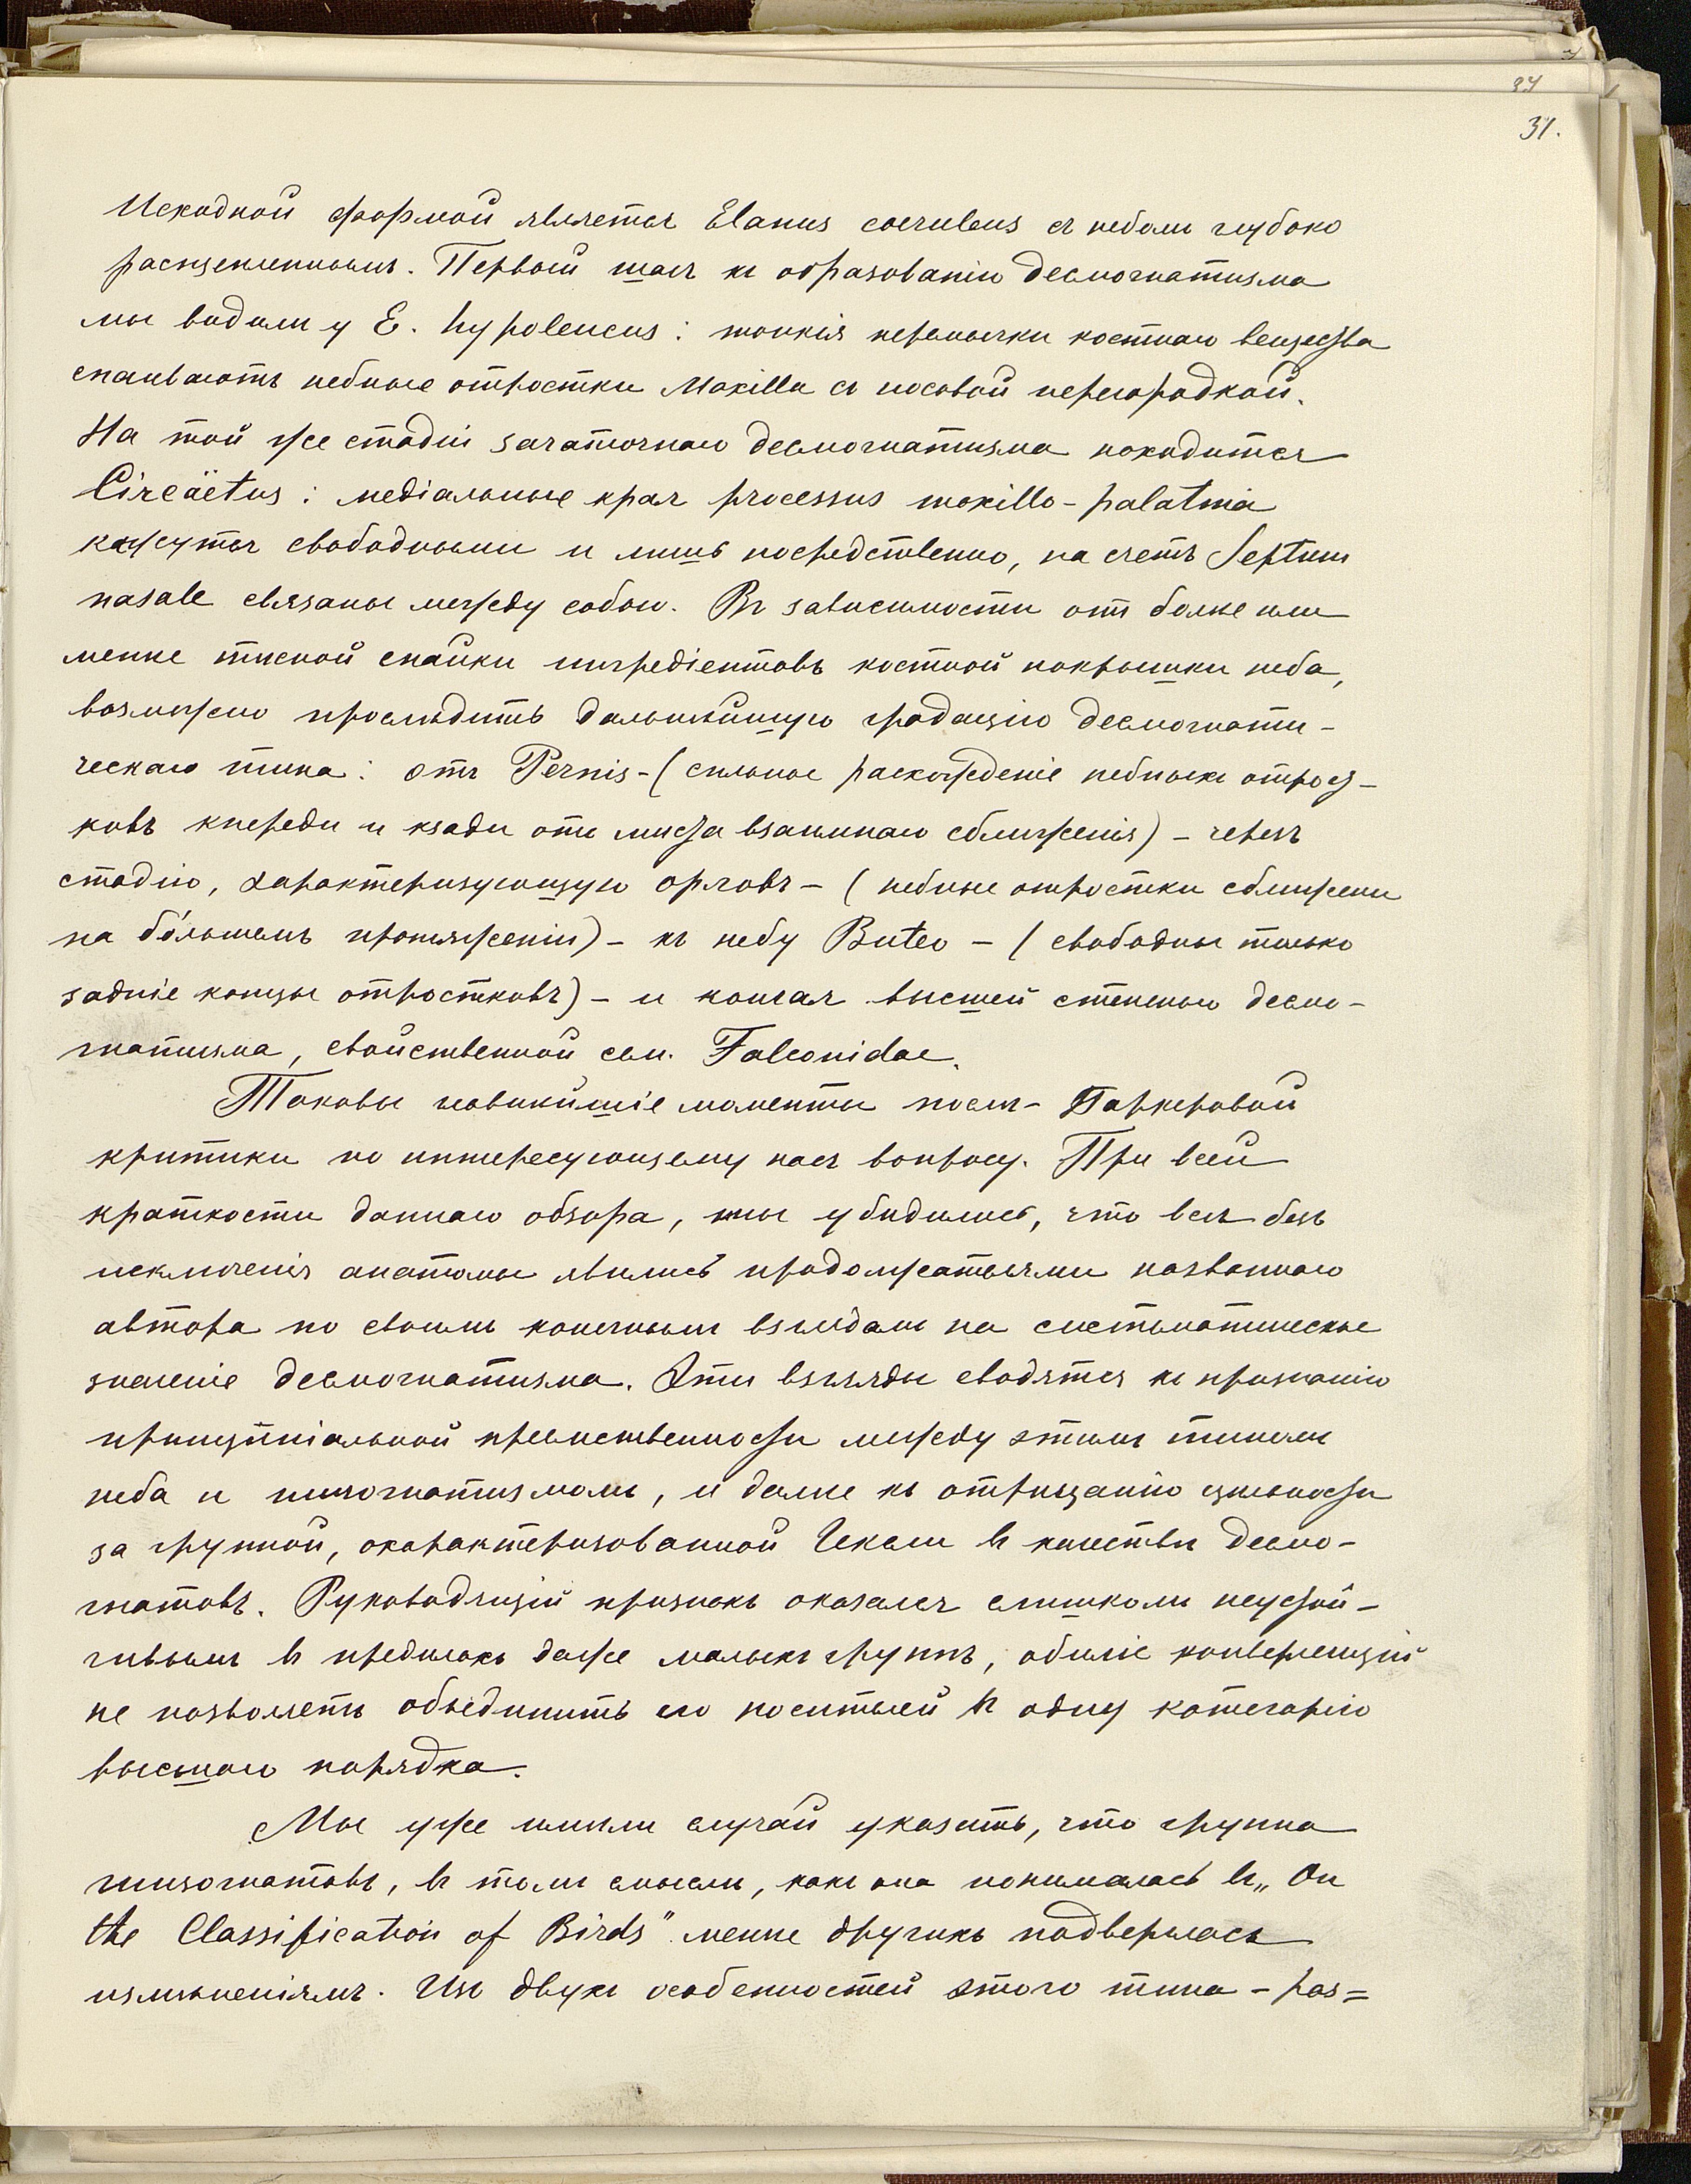 34
31.
Исходной формой является Elanus coeruleus съ небомъ глубоко
расщепленнымъ. Первый шагъ къ образованію десмогнатизма
мы видимъ у E. hypoleucus: тонкія перемычки костнаго вещества
спаиваютъ небные отростки Maxilla съ носовой перегородкой.
На той же стадіи зачаточнаго десмогнатизма находится
Circäetus: медіальные края processus maxillo-palatina
кажутся свободными и лишь посредственно, на счетъ Septum
nasale связаны между собою. Въ зависимости отъ болѣе или
менѣе тѣсной спайки ингредіентовъ костной покрышки неба,
возможно прослѣдить дальнѣйшую градацію десмогнати-
ческаго типа: отъ Pernis-(сильное расхожденіе небныхъ отрост-
ковъ кпереди и кзади отъ мѣста взаимнаго сближенія) - черезъ
стадію, характеризующую орловъ - (небные отростки сближены
на бо́льшемъ протяженіи) - къ небу Buteo - (свободны только
задніе концы отростковъ) - и кончая высшей степенью десмо-
гнатизма, свойственной сем. Falconidae.
Таковы новѣйшіе моменты послѣ-Паркеровой
критики по интересующему насъ вопросу. При всей
краткости даннаго обзора, мы убѣдились, что всѣ безъ
исключенія анатомы явились продолжателями названнаго
автора по своимъ конечнымъ взглядамъ на систематическое
значеніе десмогнатизма. Эти взгляды сводятся къ признанію
принципіальной преемственности между этимъ типомъ
неба и шизогнатизмомъ, и далѣе къ отрицанію цѣльности
за группой, охарактеризованной Гексли въ качествѣ десмо-
гнатовъ. Руководящій признакъ оказался слишкомъ неустой-
чивымъ въ предѣлахъ даже малыхъ группъ, обиліе конвергенцій
не позволяетъ объединить его носителей въ одну категорію
высшаго порядка.
Мы уже имѣли случай указать, что группа
шизогнатовъ, въ томъ смыслѣ, какъ она понималась въ „On
the Classification of Birds" менѣе другихъ подверглась
измѣненіямъ. Изъ двухъ особенностей этого типа - раз=